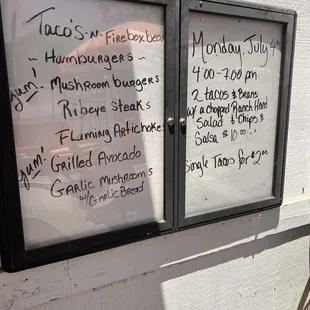 Taco's-n-Firebox bea
~ Hamburgers ~
yum! Mushroom burgers
Ribeye Steaks
Flaming Artichokes
yum! Grilled Avocado
Garlic Mushrooms
w/Garlic Bread
Monday, July 4
4:00-7:00 pm
2 tacos & Beans
w/ a chopped Ranch Hand
Salad & Chips &
Salsa $10.00
Single Tacos for $2.00